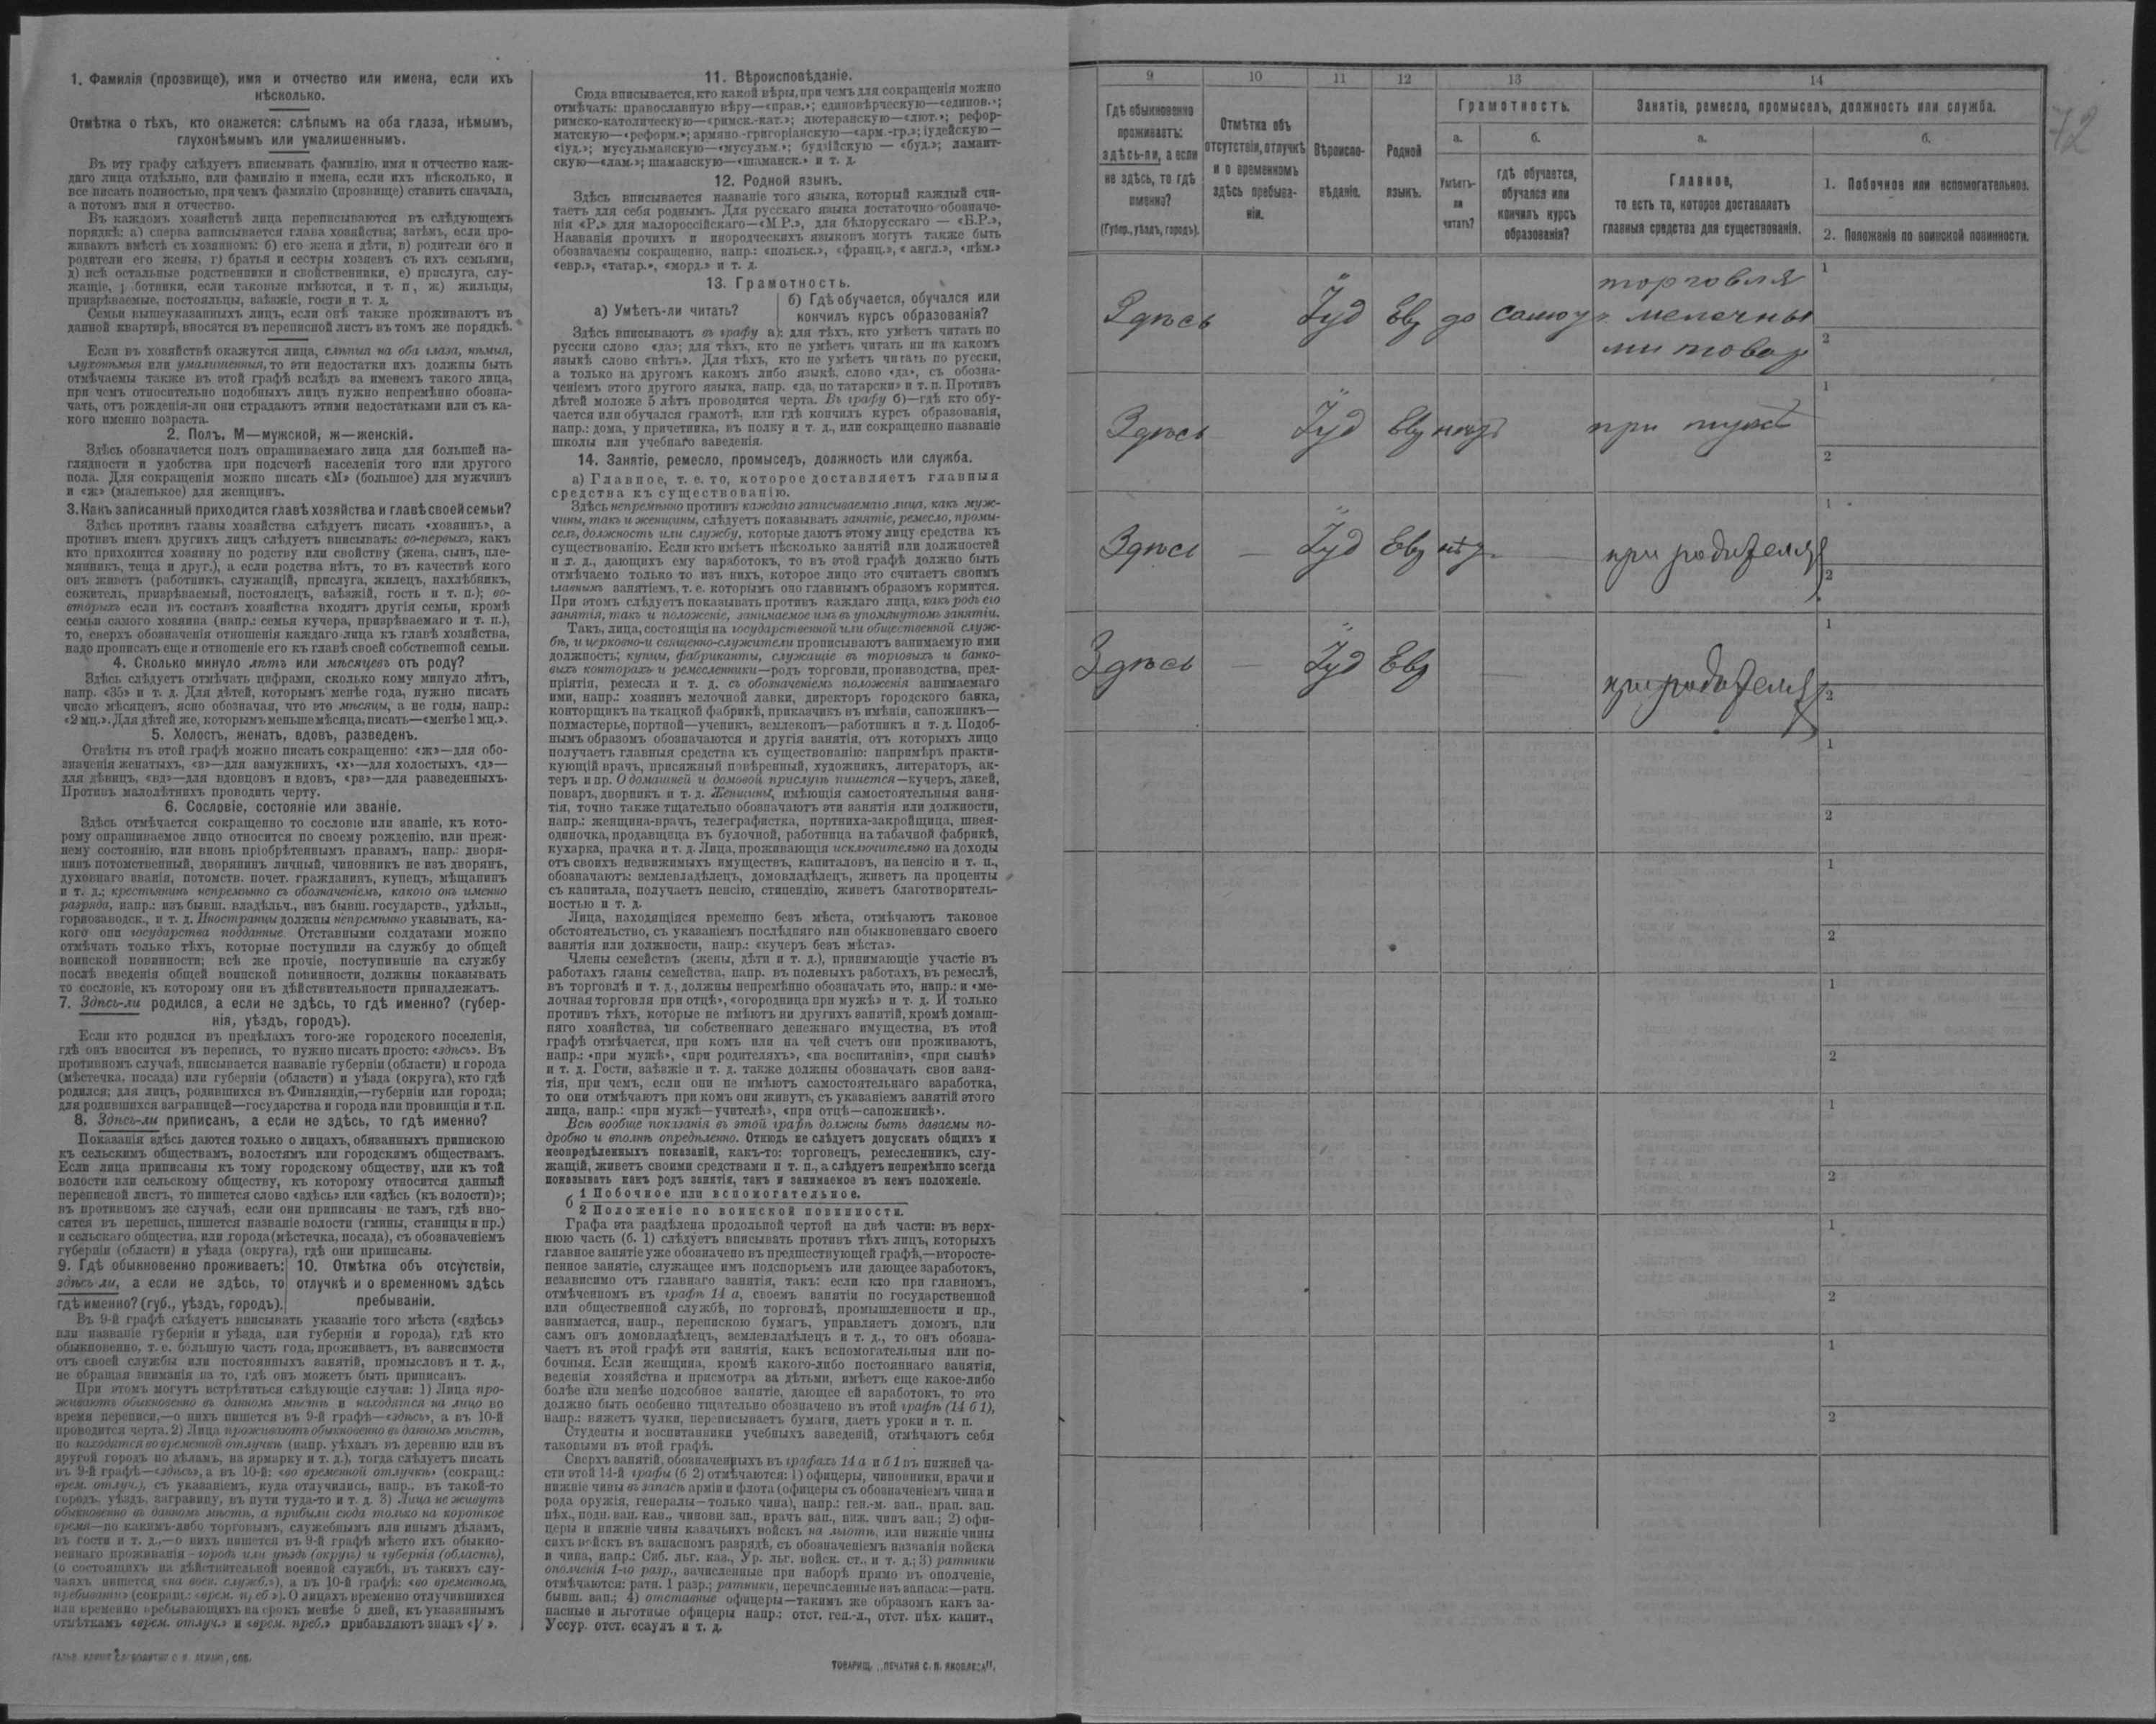 1. Фамилія (прозвище), имя и отчество или имена, если ихъ
нѣсколько.
Отмѣтка о тѣхъ, кто окажется: слѣпымъ на оба глаза, нѣмымъ,
глухонѣмымъ или умалишеннымъ.
Въ эту графу слѣдуетъ вписывать фамилію, имя и отчество каж-
даго лица отдѣльно, или фамилію и имена, если ихъ нѣсколько, и
все писать полностью, при чемъ фамилію (прозвище) ставить сначала,
а потомъ имя и отчество.
Въ каждомъ хозяйствѣ лица переписываются въ слѣдующемъ
порядкѣ: а) сперва записывается глава хозяйства; затѣмъ, если про-
живаютъ вмѣстѣ съ хозяиномъ: б) его жена и дѣти, в) родители его и
родители его жены, г) братья и сестры хозяевъ съ ихъ семьями,
д) всѣ остальные родственники и свойственники, е) прислуга, слу-
жащіе, ботники, если таковые имѣются, и т. п, ж) жильцы,
призрѣваемые, постояльцы, заѣзжіе, гости и т. д.
Семьи вышеуказанныхъ лицъ, если онѣ также проживаютъ въ
данной квартирѣ, вносятся въ переписной листъ въ томъ же порядкѣ.
Если въ хозяйствѣ окажутся лица, слѣпыя на оба глаза, нѣмыя,
глухонѣмыя или умалишенныя, то эти недостатки ихъ должны быть
отмѣчаемы также въ этой графѣ вслѣдъ за именемъ такого лица,
при чемъ относительно подобныхъ лицъ нужно непремѣнно обозна-
чать, отъ рожденія-ли они страдаютъ этими недостатками или съ ка-
кого именно возраста.
2. Полъ, М—мужской, ж—женскій.
Здѣсь обозначается полъ опрашиваемаго лица для большей на-
глядности и удобства при подсчетѣ населенія того или другого
пола. Для сокращенія можно писать «М» (большое) для мужчинъ
и «ж» (маленькое) для женщинъ.
3. Какъ записанный приходится главѣ хозяйства и главѣ своей семьи?
Здѣсь противъ главы хозяйства слѣдуетъ писать «хозяинъ», а
противъ именъ другихъ лицъ слѣдуетъ вписывать: во-первыхъ, какъ
кто приходится хозяину по родству или свойству (жена, сынъ, пле-
мянникъ, теща и друг.), а если родства нѣтъ, то въ качествѣ кого
онъ живетъ (работникъ, служащій, прислуга, жилецъ, нахлѣбникъ,
сожитель, призрѣваемый, постоялецъ, заѣзжій, гость и т. п.); во-
вторыхъ если въ составъ хозяйства входятъ другія семьи, кромѣ
семьи самого хозяина (напр.: семья кучера, призрѣваемаго и т. п.),
то, сверхъ обозначенія отношенія каждаго лица къ главѣ хозяйства,
надо прописать еще и отношеніе его къ главѣ своей собственной семьи.
4. Сколько минуло лѣтъ или мѣсяцевъ отъ роду?
Здѣсь слѣдуетъ отмѣчать цифрами, сколько кому минуло лѣтъ,
напр. «35» и т. д. Для дѣтей, которымъ менѣе года, нужно писать
число мѣсяцевъ, ясно обозначая, что это мѣсяцы, а не годы, напр.:
«2 мц.». Для дѣтей же, которымъ меньше мѣсяца, писать—«менѣе 1 мц.».
5. Холостъ, женатъ, вдовъ, разведенъ.
Отвѣты въ этой графѣ можно писать сокращенно: «ж»—для обо-
значенія женатыхъ, «з»—для замужнихъ, «х»—для холостыхъ, «д»—
для дѣвицъ, «вд»—для вдовцовъ и вдовъ, «рз»—для разведенныхъ.
Противъ малолѣтнихъ проводить черту.
6. Сословіе, состояніе или званіе.
Здѣсь отмѣчается сокращенно то сословіе или званіе, къ кото-
рому опрашиваемое лицо относится по своему рожденію, или преж-
нему состоянію, или вновь пріобрѣтеннымъ правамъ, напр.: дворя-
нинъ потомственный, дворянинъ личный, чиновникъ не изъ дворянъ,
духовнаго званія, потомств. почет. гражданинъ, купецъ, мѣщанинъ
и т. д.; крестьянинъ непремѣнно съ обозначеніемъ, какого онъ именно
разряда, напр.: изъ бывш. владѣльч., изъ бывш. государств., удѣльн.,
горнозаводск., и т. д. Иностранцы должны непремѣнно указывать, ка-
кого они государства подданные. Отставными солдатами можно
отмѣчать только тѣхъ, которые поступили на службу до общей
воинской повинности; всѣ же прочіе, поступившіе на службу
послѣ введенія общей воинской повинности, должны показывать
то сословіе, къ которому они въ дѣйствительности принадлежатъ.
7. Здѣсь-ли родился, а если не здѣсь, то гдѣ именно? (губер-
нія, уѣздъ, городъ).
Если кто родился въ предѣлахъ того-же городского поселенія,
гдѣ онъ вносится въ перепись, то нужно писать просто: «здѣсь». Въ
противномъ случаѣ, вписывается названіе губерніи (области) и города
(мѣстечка, посада) или губерніи (области) и уѣзда (округа), кто гдѣ
родился; для лицъ, родившихся въ Финляндіи,—губерніи или города;
для родившихся заграницей—государства и города или провинціи и т.п.
8. Здѣсь-ли приписанъ, а если не здѣсь, то гдѣ именно?
Показанія здѣсь даются только о лицахъ, обязанныхъ припискою
къ сельскимъ обществамъ, волостямъ или городскимъ обществамъ.
Если лица приписаны къ тому городскому обществу, или къ той
волости или сельскому обществу, къ которому относится данный
переписной листъ, то пишется слово «здѣсь» или «здѣсь (къ волости)»;
въ противномъ же случаѣ, если они приписаны не тамъ, гдѣ вно-
сятся въ перепись, пишется названіе волости (гмины, станицы и пр.)
и сельскаго общества, или города (мѣстечка, посада), съ обозначеніемъ
губерніи (области) и уѣзда (округа), гдѣ они приписаны.
9. Гдѣ обыкновенно проживаетъ:
здѣсь-ли, а если не здѣсь, то
гдѣ именно? (губ., уѣздъ, городъ).
10. Отмѣтка объ отсутствіи,
отлучкѣ и о временномъ здѣсь
пребываніи.
Въ 9-й графѣ слѣдуетъ вписывать указаніе того мѣста («здѣсь»
или названіе губерніи и уѣзда, или губерніи и города), гдѣ кто
обыкновенно, т. е. большую часть года, проживаетъ, въ зависимости
отъ своей службы или постоянныхъ занятій, промысловъ и т. д.,
не обращая вниманія на то, гдѣ онъ можетъ быть приписанъ.
При этомъ могутъ встрѣтиться слѣдующіе случаи: 1) Лица про-
живаютъ обыкновенно въ данномъ мѣстѣ и находятся на лицо во
время переписи,—о нихъ пишется въ 9-й графѣ—«здѣсь», а въ 10-й
проводится черта. 2) Лица проживаютъ обыкновенно въ данномъ мѣстѣ,
но находятся во временной отлучкѣ (напр. уѣхалъ въ деревню или въ
другой городъ по дѣламъ, на ярмарку и т. д.), тогда слѣдуетъ писать
въ 9-й графѣ—«здѣсь», а въ 10-й: «во временной отлучкѣ» (сокращ.:
врем. отлуч.), съ указаніемъ, куда отлучились, напр.. въ такой-то
городъ, уѣздъ, заграницу, въ пути туда-то и т. д. 3) Лица не живутъ
обыкновенно въ данномъ мѣстѣ, а прибыли сюда только на короткое
время—по какимъ-либо торговымъ, служебнымъ или инымъ дѣламъ,
въ гости и т. д.,—о нихъ пишется въ 9-й графѣ мѣсто ихъ обыкно-
веннаго проживанія—городъ или уѣздъ (округъ) и губернія (область),
(о состоящихъ на дѣйствительной военной службѣ, въ такихъ слу-
чаяхъ пишется «на воен. служб.»), а въ 10-й графѣ: «во временномъ
пребываніи» (сокращ.: «врем. преб»). О лицахъ временно отлучившихся
или временно пребывающихъ на срокъ менѣе 5 дней, къ указаннымъ
отмѣткамъ «врем. отлуч.» и «врем. преб.» прибавляютъ знакъ «V».
11. Вѣроисповѣданіе.
Сюда вписывается, кто какой вѣры, при чемъ для сокращенія можно
отмѣчать: православную вѣру—«прав.»; единовѣрческую—«единов.»;
римско-католическую—«римск.-кат.»; лютеранскую—«лют.»; рефор-
матскую—«реформ.»; армяно-григоріанскую—«арм.-гр.»; іудейскую—
«іуд.»; мусульманскую—«мусульм.»; буддійскую — «буд.»; ламаит-
скую—«лам.»; шаманскую—«шаманск.» и т. д.
12. Родной языкъ.
Здѣсь вписывается названіе того языка, который каждый счи-
таетъ для себя роднымъ. Для русскаго языка достаточно обозначе-
нія «Р.» для малороссійскаго—«М.Р.», для бѣлорусскаго — «Б.Р.»,
Названія прочихъ и инородческихъ языковъ могутъ также быть
обозначаемы сокращенно, напр.: «польск.», «франц.», «англ.», «нѣм.»
«евр.», «татар.», «морд.» и т. д.
13. Грамотность.
а) Умѣетъ-ли читать?
б) Гдѣ обучается, обучался или
кончилъ курсъ образованія?
Здѣсь вписываютъ въ графу а): для тѣхъ, кто умѣетъ читать по
русски слово «да»; для тѣхъ, кто не умѣетъ читать ни на какомъ
языкѣ слово «нѣтъ». Для тѣхъ, кто не умѣетъ читать по русски,
а только на другомъ какомъ либо языкѣ, слово «да», съ обозна-
ченіемъ этого другого языка, напр. «да, по татарски» и т. п. Противъ
дѣтей моложе 5 лѣтъ проводится черта. Въ графу б)—гдѣ кто обу-
чается или обучался грамотѣ, или гдѣ кончилъ курсъ образованія,
напр.: дома, у причетника, въ полку и т. д., или сокращенно названіе
школы или учебнаго заведенія.
14. Занятіе, ремесло, промыселъ, должность или служба.
а) Главное, т. е. то, которое доставляетъ главныя
средства къ существованію.
Здѣсь непремѣнно противъ каждаго записываемаго лица, какъ муж-
чины, такъ и женщины, слѣдуетъ показывать занятіе, ремесло, промы-
селъ, должность или службу, которые даютъ этому лицу средства къ
существованію. Если кто имѣетъ нѣсколько занятій или должностей
и т. д., дающихъ ему заработокъ, то въ этой графѣ должно быть
отмѣчаемо только то изъ нихъ, которое лицо это считаетъ своимъ
главнымъ занятіемъ, т. е. которымъ оно главнымъ образомъ кормится.
При этомъ слѣдуетъ показывать противъ каждаго лица, какъ родъ его
занятія, такъ и положеніе, занимаемое имъ въ упомянутомъ занятіи.
Такъ, лица, состоящія на государственной или общественной служ-
бѣ, и церковно-и священно-служители прописываютъ занимаемую ими
должность; купцы, фабриканты, служащіе въ торговыхъ и банко-
выхъ конторахъ и ремесленники—родъ торговли, производства, пред-
пріятія, ремесла и т. д. съ обозначеніемъ положенія занимаемаго
ими, напр.: хозяинъ мелочной лавки, директоръ городского банка,
конторщикъ на ткацкой фабрикѣ, приказчикъ въ имѣніи, сапожникъ—
подмастерье, портной—ученикъ, землекопъ—работникъ и т. д. Подоб-
нымъ образомъ обозначаются и другія занятія, отъ которыхъ лицо
получаетъ главныя средства къ существованію: напримѣръ практи-
кующій врачъ, присяжный повѣренный, художникъ, литераторъ, ак-
теръ и пр. О домашней и домовой прислугѣ пишется—кучеръ, лакей,
поваръ, дворникъ и т. д. Женщины, имѣющія самостоятельныя заня-
тія, точно также тщательно обозначаютъ эти занятія или должности,
напр.: женщина-врачъ, телеграфистка, портниха-закройщица, швея-
одиночка, продавщица въ булочной, работница на табачной фабрикѣ,
кухарка, прачка и т. д. Лица, проживающія исключительно на доходы
отъ своихъ недвижимыхъ имуществъ, капиталовъ, на пенсію и т. п.,
обозначаютъ: землевладѣлецъ, домовладѣлецъ, живетъ на проценты
съ капитала, получаетъ пенсію, стипендію, живетъ благотворитель-
ностью и т. д.
Лица, находящіяся временно безъ мѣста, отмѣчаютъ таковое
обстоятельство, съ указаніемъ послѣдняго или обыкновеннаго своего
занятія или должности, напр.: «кучеръ безъ мѣста».
Члены семействъ (жены, дѣти и т. д.), принимающіе участіе въ
работахъ главы семейства, напр. въ полевыхъ работахъ, въ ремеслѣ,
въ торговлѣ и т. д., должны непремѣнно обозначать это, напр.: и «ме-
лочная торговля при отцѣ», «огородница при мужѣ» и т. д. И только
противъ тѣхъ, которые не имѣютъ ни другихъ занятій, кромѣ домаш-
няго хозяйства, ни собственнаго денежнаго имущества, въ этой
графѣ отмѣчается, при комъ или на чей счетъ они проживаютъ,
напр.: «при мужѣ», «при родителяхъ», «на воспитаніи», «при сынѣ»
и т. д. Гости, заѣзжіе и т. д. также должны обозначать свои заня-
тія, при чемъ, если они не имѣютъ самостоятельнаго заработка,
то они отмѣчаютъ при комъ они живутъ, съ указаніемъ занятій этого
лица, напр.: «при мужѣ—учителѣ», «при отцѣ—сапожникѣ».
Всѣ вообще показанія въ этой графѣ должны быть даваемы по-
дробно и вполнѣ опредѣленно. Отнюдь не слѣдуетъ допускать общихъ и
неопредѣленныхъ показаній, какъ-то: торговецъ, ремесленникъ, слу-
жащій, живетъ своими средствами и т. п., а слѣдуетъ непремѣнно всегда
показывать какъ родъ занятія, такъ и занимаемое въ немъ положеніе.
б 1 Побочное или вспомогательное.
2 Положеніе по воинской повинности.
Графа эта раздѣлена продольной чертой на двѣ части: въ верх-
нюю часть (б. 1) слѣдуетъ вписывать противъ тѣхъ лицъ, которыхъ
главное занятіе уже обозначено въ предшествующей графѣ,—второсте-
пенное занятіе, служащее имъ подспорьемъ или дающее заработокъ,
независимо отъ главнаго занятія, такъ: если кто при главномъ,
отмѣченномъ въ графѣ 14 а, своемъ занятіи по государственной
или общественной службѣ, по торговлѣ, промышленности и пр.,
занимается, напр., перепискою бумагъ, управляетъ домомъ, или
самъ онъ домовладѣлецъ, землевладѣлецъ и т. д., то онъ обозна-
чаетъ въ этой графѣ эти занятія, какъ вспомогательныя или по-
бочныя. Если женщина, кромѣ какого-либо постояннаго занятія,
веденія хозяйства и присмотра за дѣтьми, имѣетъ еще какое-либо
болѣе или менѣе подсобное занятіе, дающее ей заработокъ, то это
должно быть особенно тщательно обозначено въ этой графѣ (14 б 1),
напр.: вяжетъ чулки, переписываетъ бумаги, даетъ уроки и т. п.
Студенты и воспитанники учебныхъ заведеній, отмѣчаютъ себя
таковыми въ этой графѣ.
Сверхъ занятій, обозначенныхъ въ графахъ 14 а и б 1 въ нижней ча-
сти этой 14-й графы (б 2) отмѣчаются: 1) офицеры, чиновники, врачи и
нижніе чины въ запасѣ арміи и флота (офицеры съ обозначеніемъ чина и
рода оружія, генералы—только чина), напр.: ген.-м. зап., прап. зап.
пѣх., подп. зап. кав., чиновн. зап., врачъ зап., ниж. чинъ зап.; 2) офи-
церы и нижніе чины казачьихъ войскъ на льготѣ, или нижніе чины
сихъ войскъ въ запасномъ разрядѣ, съ обозначеніемъ названія войска
и чина, напр.: Сиб. льг. каз., Ур. льг. войск. ст.. и т. д.; 3) ратники
ополченія 1-го разр., зачисленные при наборѣ прямо въ ополченіе,
отмѣчаются: ратн. 1 разр.; ратники, перечисленные изъ запаса:—ратн.
бывш. зап.; 4) отставные офицеры—такимъ же образомъ какъ за-
пасные и льготные офицеры напр.: отст. ген.-л., отст. пѣх. капит.,
Уссур. отст. есаулъ и т. д.
ТОВАРИЩ. „ПЕЧАТНЯ С. П. ЯКОВЛЕВА".
72
9 10 11 12 13 14
Гдѣ обыкновенно
проживаетъ:
здѣсь-ли, а если
не здѣсь, то гдѣ
именно?
(Губер., уѣздъ, городъ).
Отмѣтка объ
отсутствіи, отлучкѣ
и о временномъ
здѣсь пребыва-
ніи.
Вѣроиспо-
вѣданіе.
Родной
языкъ.
Грамотность.
а. б.
Умѣетъ-
ли
читать?
гдѣ обучается,
обучался или
кончилъ курсъ
образованія?
Занятіе, ремесло, промыселъ, должность или служба.
а. б.
Главное,
то есть то, которое доставляетъ
главныя средства для существованія.
1. Побочное или вспомогательное.
2. Положеніе по воинской повинности.
торговля 1
Здѣсь Іуд Евр да мелочны
ми товар 2
1
Здѣсь Іуд Евр нѣтъ при мужѣ
2
1
Здѣсь — Іуд Евр нѣт — при родителях
2
1
Здѣсь — Іуд Евр — при родителях
2
1
2
1
2
1
2
1
2
1
2
1
2